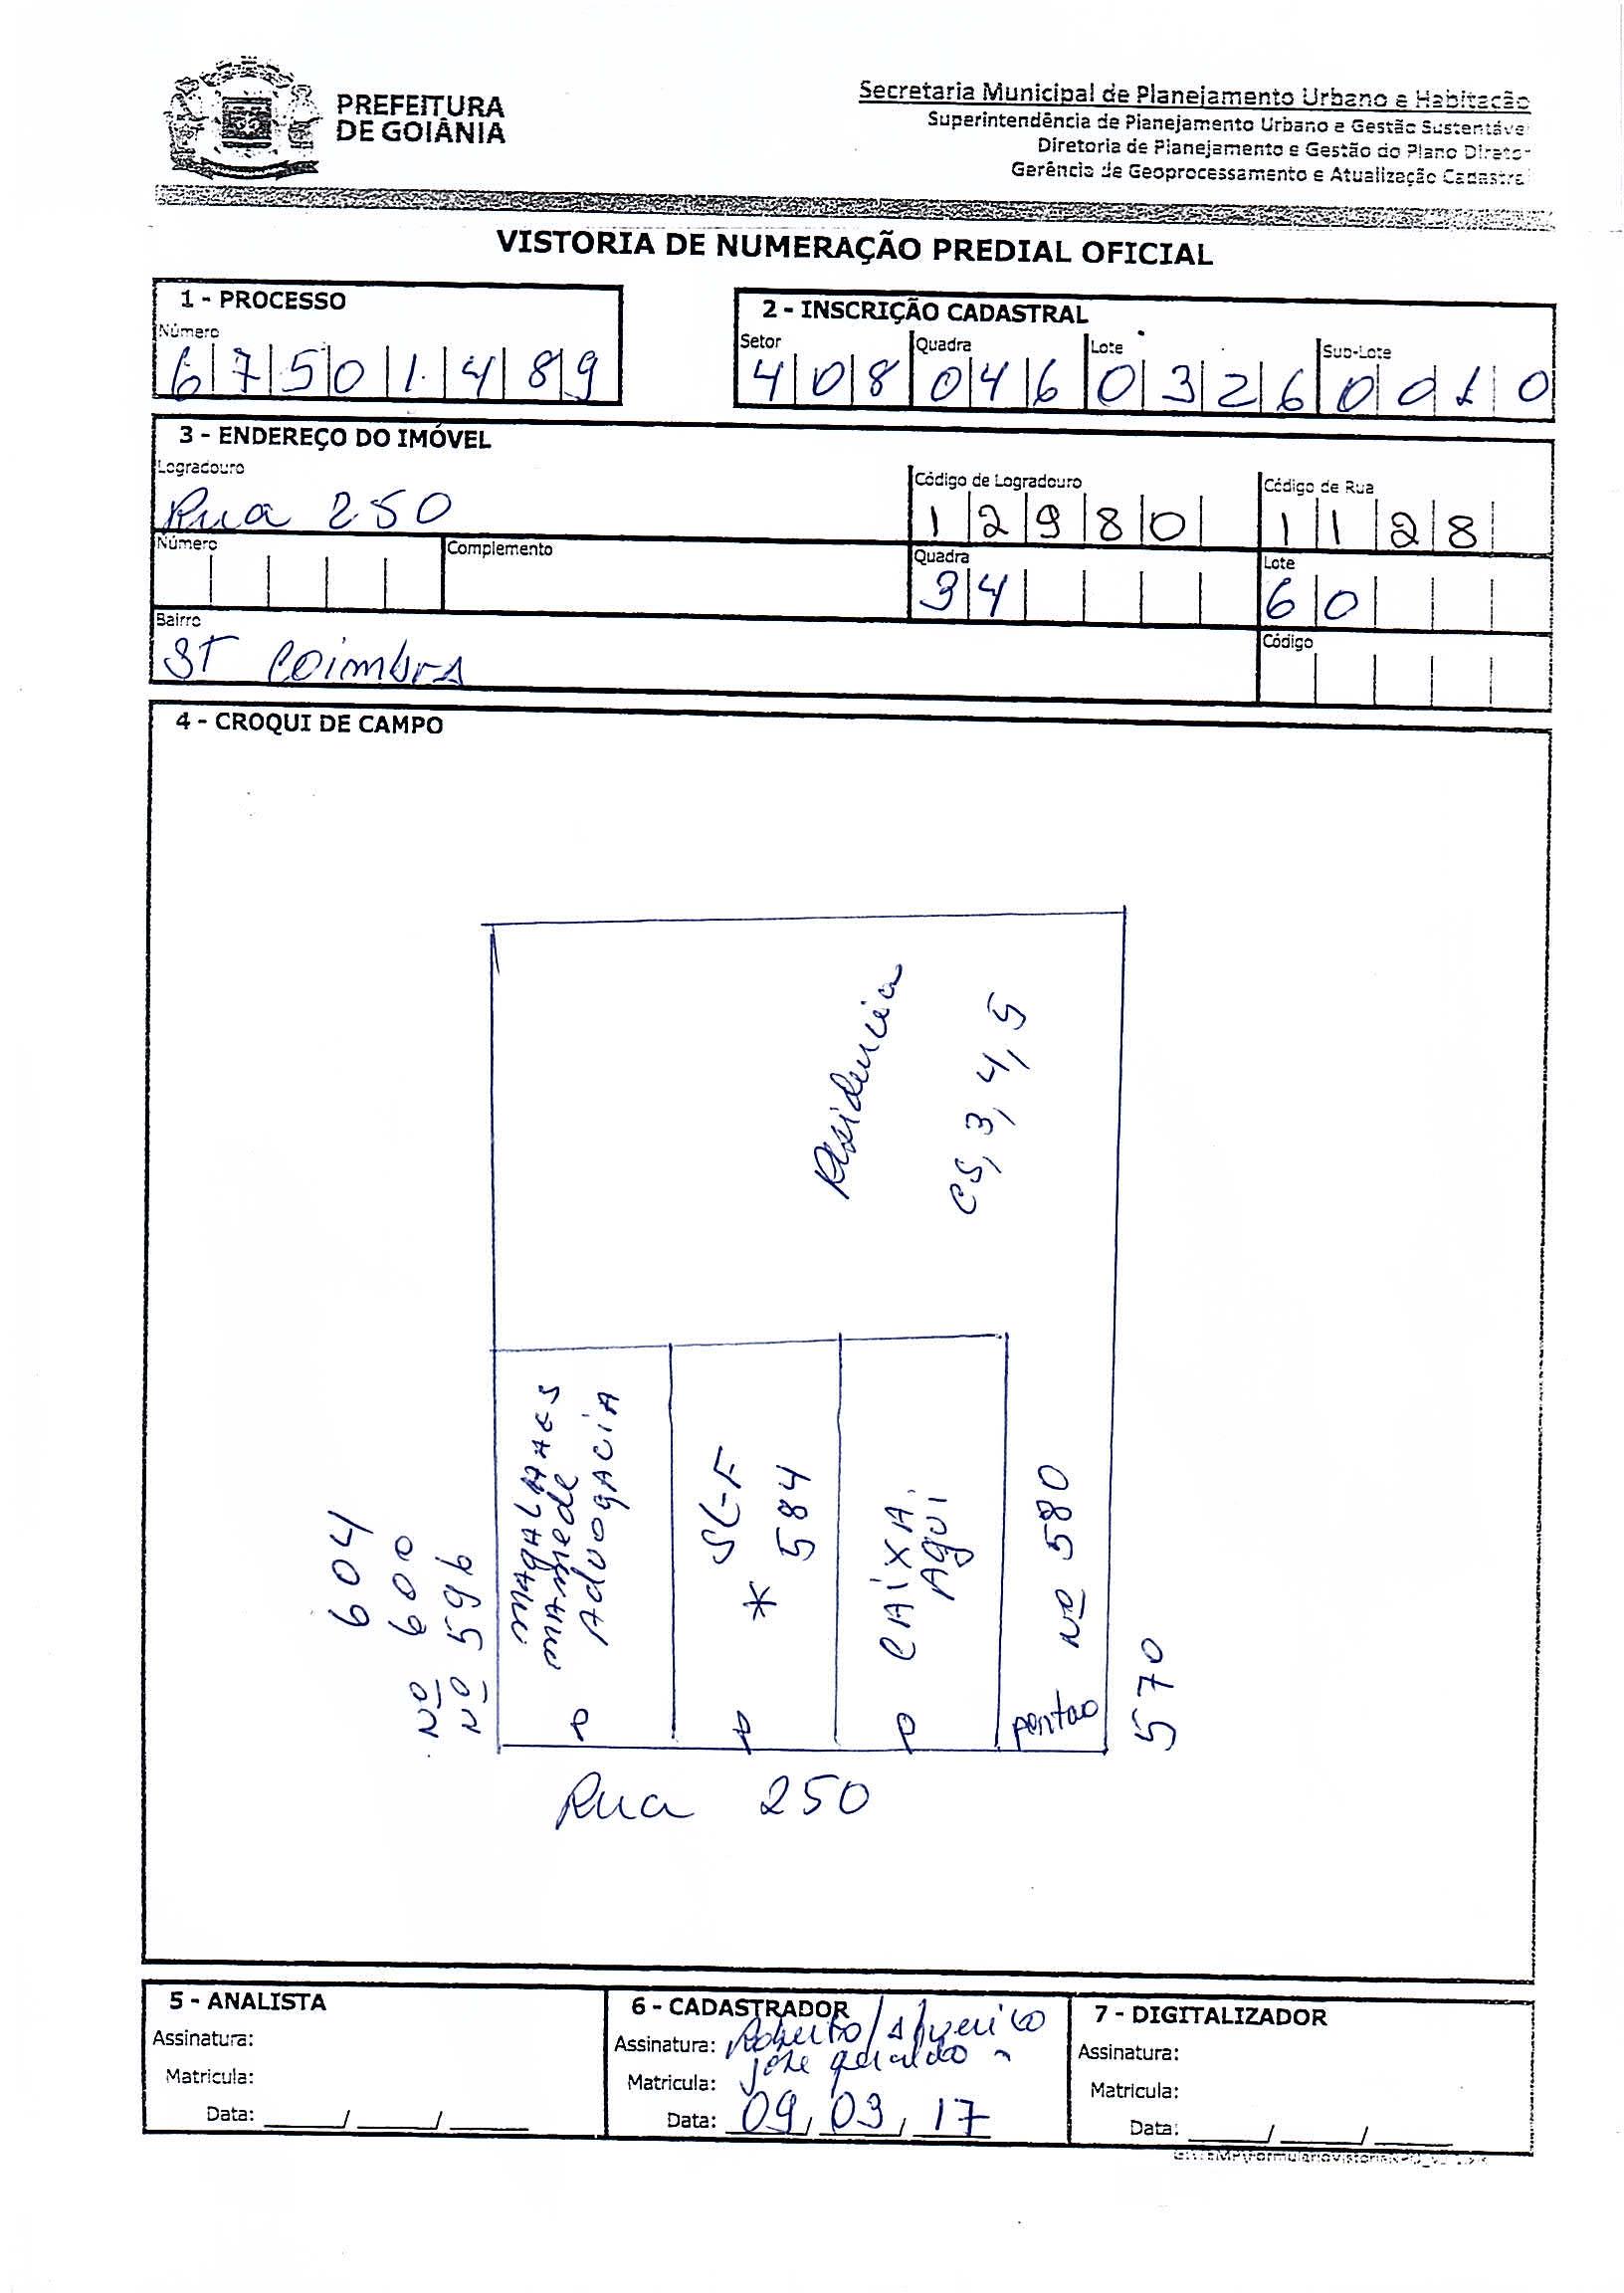 PREFEITURA
DE GOIÂNIA
Secretaria Municipal de Planejamento Urbano e Habitação
Superintendência de Planejamento Urbano e Gestão Sustentável
Diretoria de Planejamento e Gestão do Plano Diretor
Gerência de Geoprocessamento e Atualização Cadastral
VISTORIA DE NUMERAÇÃO PREDIAL OFICIAL
1 - PROCESSO
Número
6 7 5 0 1 4 8 9
2 - INSCRIÇÃO CADASTRAL
Setor Quadra Lote Sub-Lote
4 0 8 0 4 6 0 3 2 6 0 0 1 0
3 - ENDEREÇO DO IMÓVEL
Logradouro Código de Logradouro Código de Rua
Rua 250 1 2 9 8 0 1 1 2 8
Número Complemento Quadra Lote
3 4 6 0
Bairro Código
ST Coimbra
4 - CROQUI DE CAMPO
Residencia
CS, 3, 4, 5
604
Nº 600
Nº 596
MAGALHAES
MAMEDE
ADVOGACIA
P
SL-F
* 584
P
CAIXA.
AQUI
P
portao Nº 580
570
Rua 250
5 - ANALISTA
Assinatura:
Matricula:
Data: ____/____/____
6 - CADASTRADOR
Assinatura: Roberto /
José geraldo
Matricula:
Data: 09/03/17
7 - DIGITALIZADOR
Assinatura:
Matricula:
Data: ____/____/____